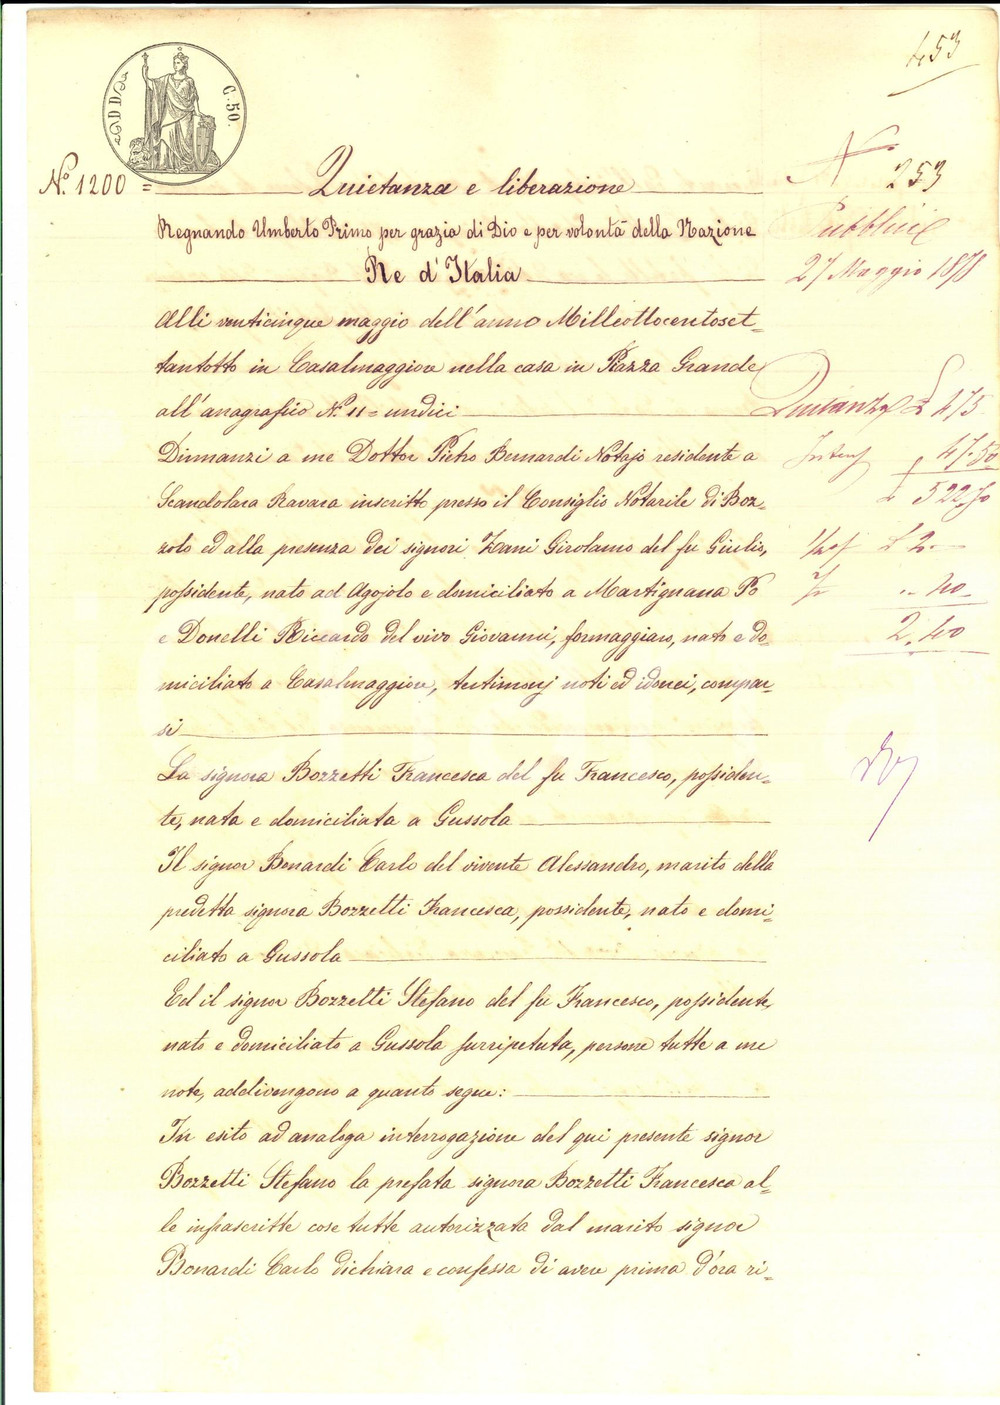 453
C. 50.
N.º 1200 =
Quietanza e liberazione
N.
253
Regnando Umberto Primo per grazia di Dio e per volontà della Nazione
Re d'Italia
Pubblici
27 Maggio 1878
Alli venticinque maggio dell'anno Milleottocentoset-
tantotto in Casalmaggiore nella casa in Piazza Grande
all'anagrafico N.º 11 = undici
Quitanza £ 475
Dinnanzi a me Dottor Pietro Bernardi Notajo residente a
47.50
Scandolara Ravara inscritto presso il Consiglio Notarile di Boz-
£ 522.50
zolo ed alla presenza dei signori Zani Girolamo del fu Giulio,
£ 2.
possidente, nato ad Agojolo e domiciliato a Martignana Po
40
e Donelli Riccardo del vivo Giovanni, formaggiaro, nato e do-
2.40
miciliato a Casalmaggiore, testimonj noti ed idonei, compar-
si
La signora Bozzetti Francesca del fu Francesco, possiden-
te, nata e domiciliata a Gussola
Il signor Bonardi Carlo del vivente Alessandro, marito della
predetta signora Bozzetti Francesca, possidente, nato e domi-
ciliato a Gussola
Ed il signor Bozzetti Stefano del fu Francesco, possidente,
nato e domiciliato a Gussola surripetuta, persone tutte a me
note, addivengono a quanto segue:
In esito ad analoga interrogazione del qui presente signor
Bozzetti Stefano la prefata signora Bozzetti Francesca al-
le infrascritte cose tutte autorizzata dal marito signor
Bonardi Carlo dichiara e confessa di avere prima d'ora ri-